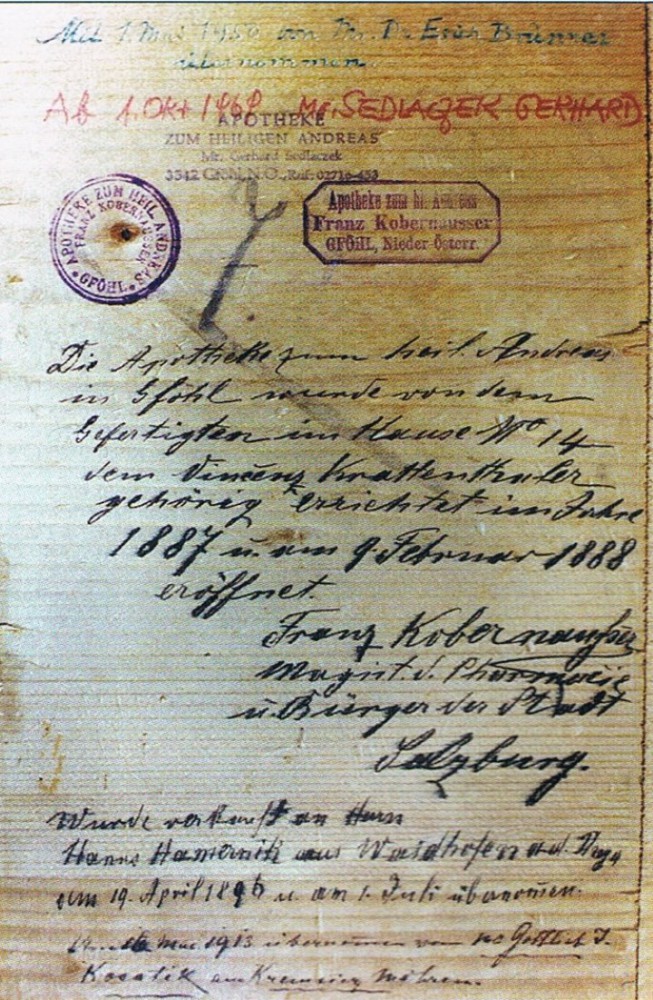 Mit 1. Mai 1950 von Mr. Dr Erich Brunner
übernommen.
Ab 1. Okt 1968 Mr. SEDLACZEK GERHARD
APOTHEKE
ZUM HEILIGEN ANDREAS
Mr. Gerhard Sedlaczek
3542 Gföhl, N.Ö., Ruf: 02716-453
APOTHEKE ZUM HEIL. ANDREAS
FRANZ KOBERNAUSSER
GFÖHL
Apotheke zum hl. Andreas
Franz Kobernausser
GFÖHL, Nieder-Österr.
Die Apotheke zum heil. Andreas
in Gföhl wurde von dem
Gefertigten im Hause No 14
dem Vincenz Krattenthaler
gehörig errichtet im Jahre
1887 u. am 9. Februar 1888
eröffnet.
Franz Kobernausser
Magist. d. Pharmacie
u. Bürger der Stadt
Salzburg.
Wurde verkauft an Herrn
Hanns Hamernik aus Waidhofen a. d. Thaya
am 19. April 1896 u. am 1. Juli übernomen.
Mai 1913 übernommen von Gottlieb J.
Kosatik aus Kremsier Mähren.